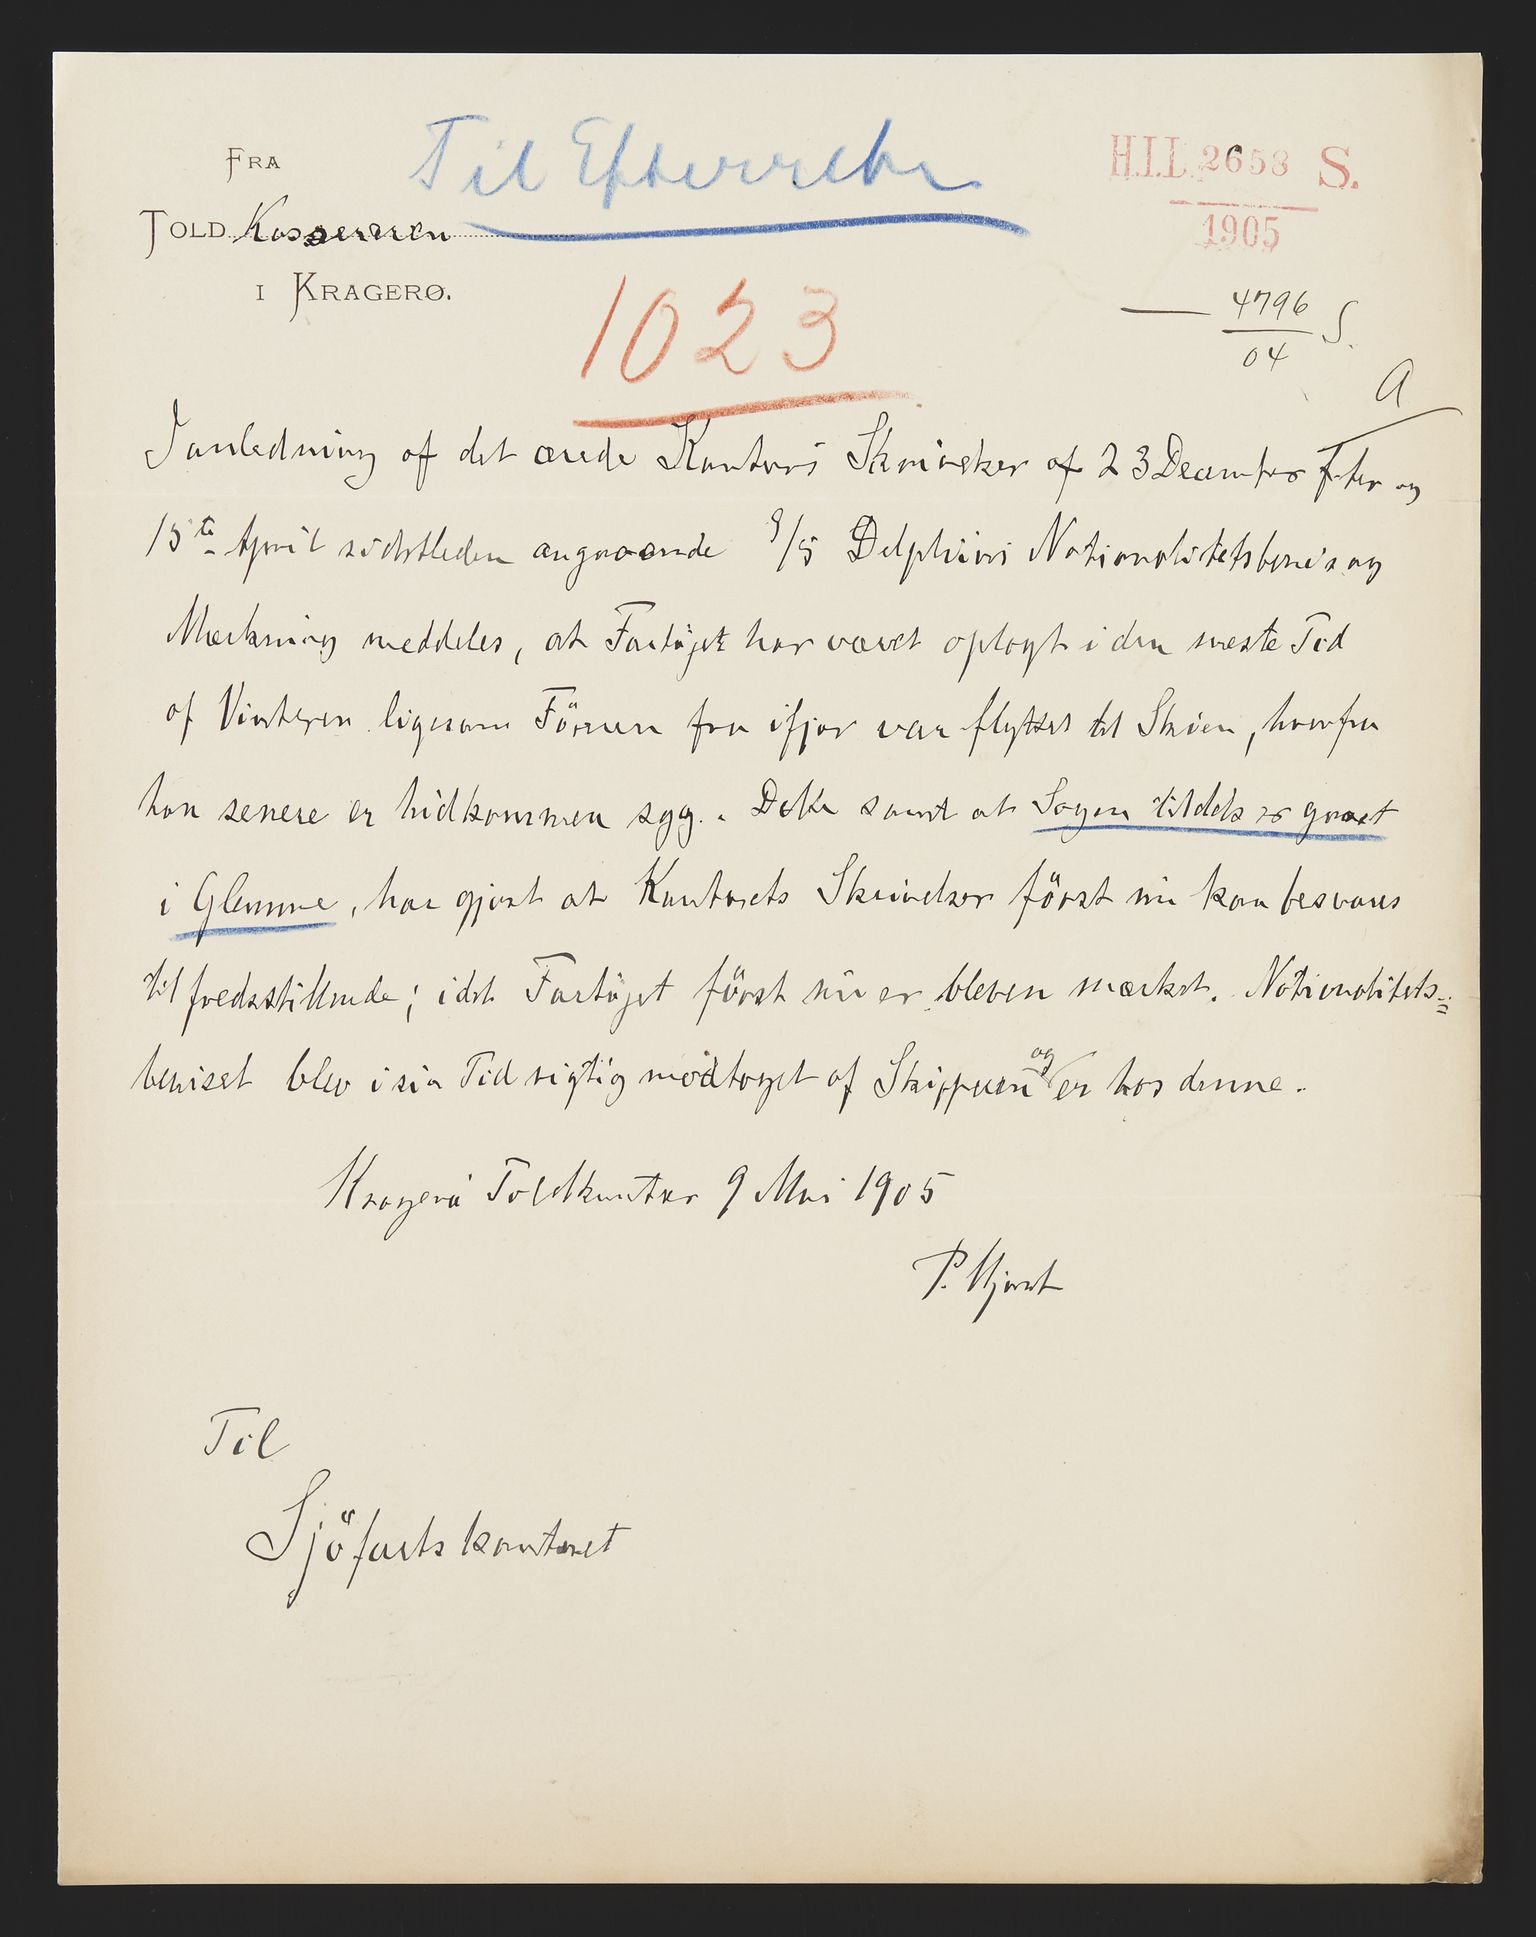 FRA
TOLD Kassereren
I KRAGERØ.
Til Efterretn
H.I.I. 2653 S.
1905
1023
4796 S.
04
a
I anledning af det ærede Kontors Skrivelser af 23 December f. år og
15de April sidstleden angaaende S/S Delphins Nationalitetsbevis og
Mærkning meddeles, at Fartöjet har været oplagt i den meste Tid
af Vinteren ligesom Föreren fra ifjor var flyttet til Skien, hvorfra
han senere er hidkommen syg. Dette samt at Sagen tildels er gaaet
i Glemme, har gjort at Kontorets Skrivelser först nu kan besvares
tilfredsstillende; idet Fartöjet först nu er bleven mærket. Nationalitets=
beviset blev i sin Tid rigtig modtaget af Skipperen og er hos denne.
Kragerö Toldkontor 9 Mai 1905
P. Hjort
Til
Sjöfartskontoret